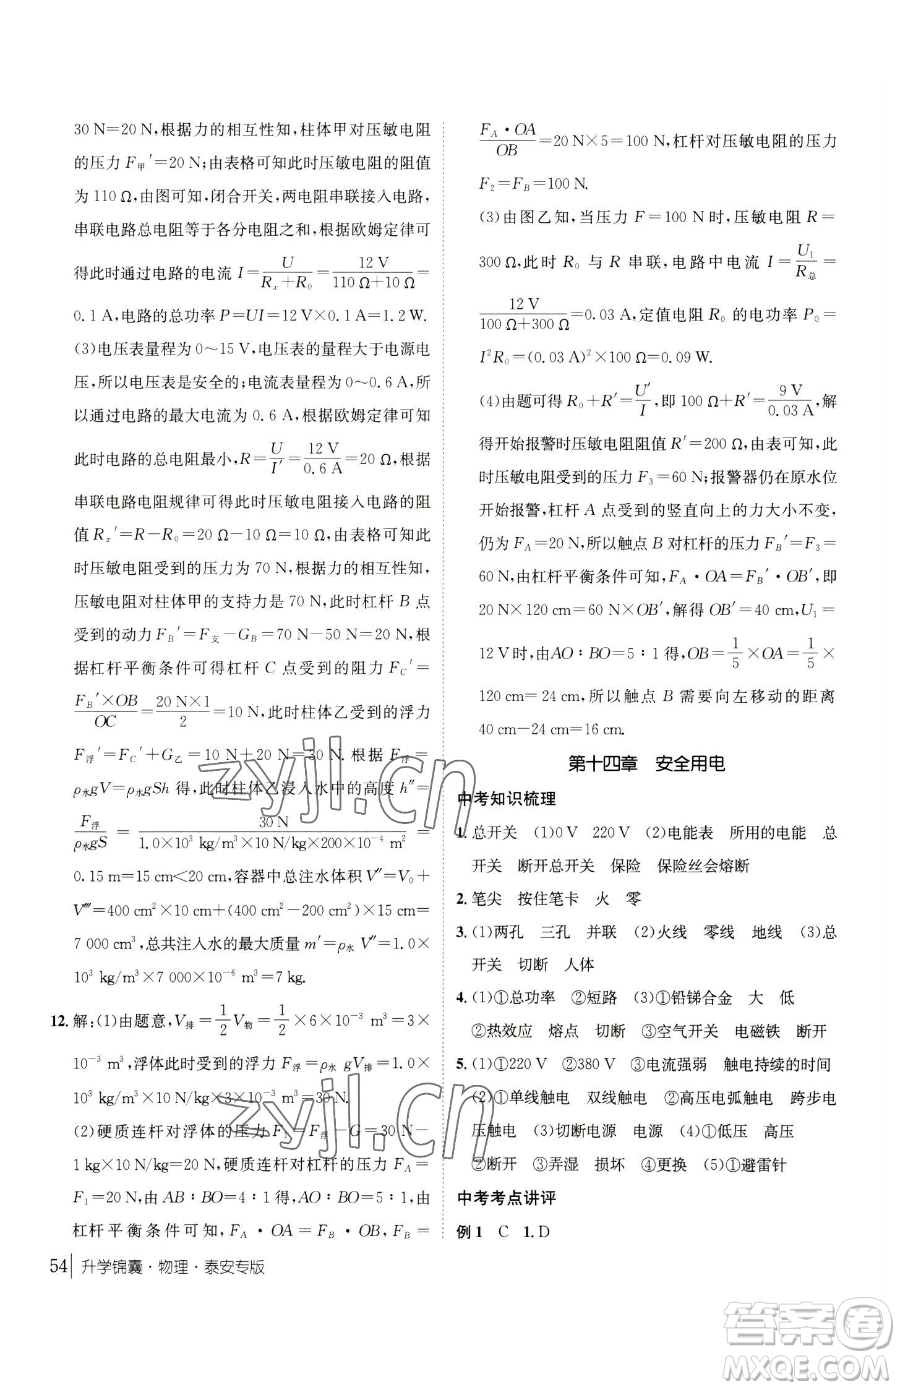 30 N=20 N,根据力的相互性知,柱体甲对压敏电阻
的压力 F甲′=20 N;由表格可知此时压敏电阻的阻值
为 110 Ω,由图可知,闭合开关,两电阻串联接入电路,
串联电路总电阻等于各分电阻之和,根据欧姆定律可
得此时通过电路的电流 I=U/(Rx+R0)=12 V/(110 Ω+10 Ω)=
0.1 A,电路的总功率 P=UI=12 V×0.1 A=1.2 W.
(3)电压表量程为 0～15 V,量程大于电源电
压,所以电压表是安全的;电流表量程为 0～0.6 A,所
以通过电路的最大电流为 0.6 A,根据欧姆定律可知
此时电路的总电阻最小,R=U/I′=12 V/0.6 A=20 Ω,根据
串联电路电阻规律可得此时压敏电阻接入电路的阻
值 Rx′=R-R0=20 Ω-10 Ω=10 Ω;由表格可知此
时压敏电阻受到的压力为 70 N,根据力的相互性知,
压敏电阻对柱体甲的支持力是 70 N,此时杠杆 B 点
受到的动力 FB′=F支-GB=70 N-50 N=20 N,根
据杠杆平衡条件可得杠杆 C 点受到的阻力 FC′=
FB′×OB/OC=20 N×1/2=10 N,此时柱体乙受到的浮力
F浮′=FC′+G乙=10 N+20 N=30 N.根据 F浮=
ρ水gV=ρ水gSh 得,此时柱体乙浸入水中的高度 h″=
F浮/ρ水gS=30 N/(1.0×10³ kg/m³×10 N/kg×200×10⁻⁴ m²)=
0.15 m=15 cm<20 cm,容器中总注水体积 V″=V0+
V‴=400 cm²×10 cm+(400 cm²-200 cm²)×15 cm=
7 000 cm³,总共注入水的最大质量 m′=ρ水 V″=1.0×
10³ kg/m³×7 000×10⁻⁶ m³=7 kg.
12. 解:(1)由题意,V排=1/2V物=1/2×6×10⁻³ m³=3×
10⁻³ m³,浮体此时受到的浮力 F浮=ρ水 gV排=1.0×
10³ kg/m³×10 N/kg×3×10⁻³ m³=30 N.
(2)硬质连杆对浮体的压力 F1=F浮-G=30 N-
1 kg×10 N/kg=20 N,硬质连杆对杠杆的压力 FA=
F1=20 N,由 AB∶BO=4∶1,得 AO∶BO=5∶1,由
杠杆平衡条件可知,FA·OA=FB·OB,FB=
54 升学锦囊·物理·泰安专版
FA·OA/OB=20 N×5=100 N,杠杆对压敏电阻的压力
F2=FB=100 N.
(3)由图乙知,当压力 F=100 N时,压敏电阻 R=
300 Ω,此时 R0 与 R 串联,电路中电流 I=U1/R总=
12 V/(100 Ω+300 Ω)=0.03 A,定值电阻 R0 的电功率 P0=
I²R0=(0.03 A)²×100 Ω=0.09 W.
(4)由题可得 R0+R′=U′/I,即 100 Ω+R′=9 V/0.03 A,解
得开始报警时压敏电阻阻值 R′=200 Ω,由表可知,
压敏电阻受到的压力 F3=60 N;报警器仍在原水位
开始报警,杠杆 A 点受到的竖直向上的力大小不变,
仍为 FA=20 N,所以触点 B 对杠杆的压力 FB′=F3=
60 N,由杠杆平衡条件可知,FA·OA=FB′·OB′,即
20 N×120 cm=60 N×OB′,解得 OB′=40 cm,U1=
12 V时,由 AO∶BO=5∶1得,OB=1/5×OA=1/5×
120 cm=24 cm,所以触点 B 需要向左移动的距离
40 cm-24 cm=16 cm.
第十四章 安全用电
中考知识梳理
1. 总开关 (1)0 V 220 V (2)电能表 所用的电能 总
开关 断开总开关 保险 保险丝会熔断
2. 笔尖 按住笔卡 火 零
3. (1)两孔 三孔 并联 (2)火线 零线 地线 (3)总
开关 切断 人体
4. (1)①总功率 ②短路 (2)①铅锑合金 大 低
②热效应 熔点 切断 ③空气开关 电磁铁 断开
5. (1)①220 V ②380 V ③电流强弱 触电持续的时间
(2)①单线触电 双线触电 ②高压电弧触电 跨步电
压触电 (3)切断电源 电源 (4)①低压 高压
②断开 ③弄湿 损坏 ④更换 (5)避雷针
中考考点讲评
例 1 C 1.D
zyjl.cn
zyjl.cn
答案圈
MXQE.COM